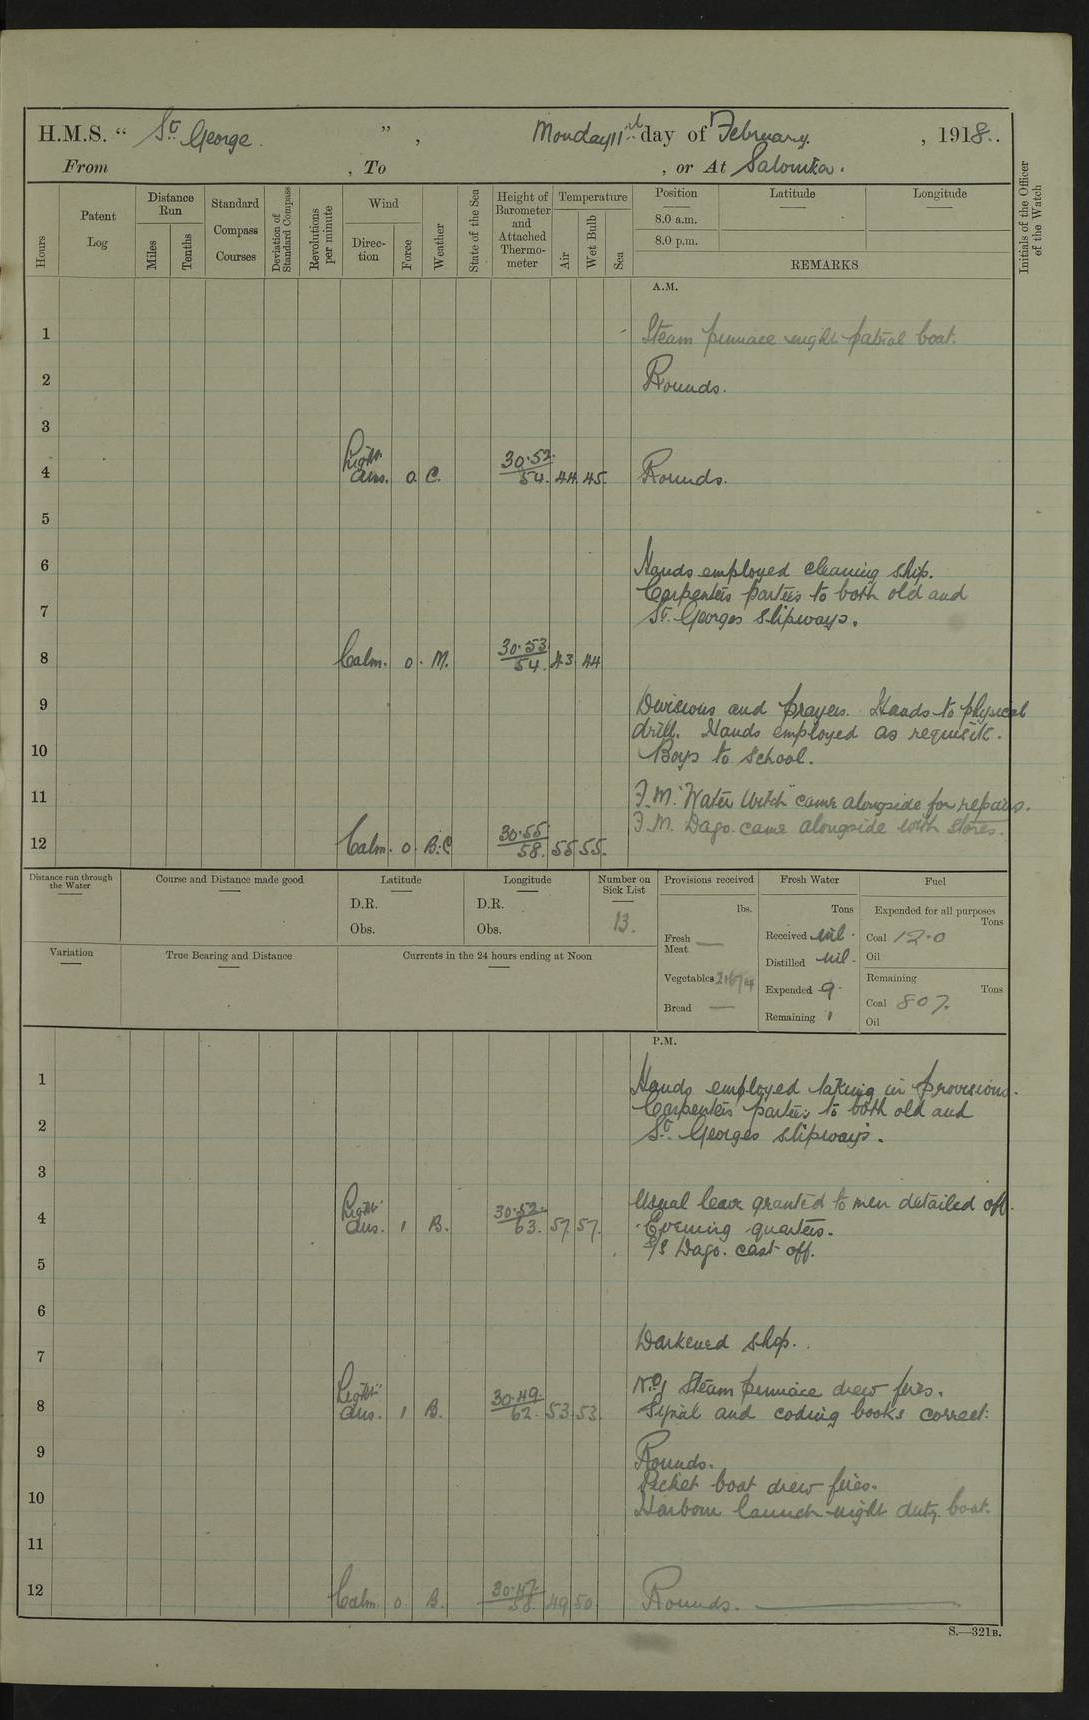 H.M.S. “ St. George. ” , Monday 11th day of February. , 1918..
From , To , or At Salonika.
Hours
Patent Log
Distance Run
Miles
Tenths
Standard Compass Courses
Deviation of Standard Compass
Revolutions per minute
Wind
Direction
Force
Weather
State of the Sea
Height of Barometer and Attached Thermometer
Temperature
Air
Wet Bulb
Sea
Position
Latitude
Longitude
8.0 a.m.
8.0 p.m.
REMARKS
Initials of the Officer of the Watch
A.M.
1 Steam pinnace night patrol boat.
2 Rounds.
3
4 Light airs. 0 C. 30.52 54. 44. 45. Rounds.
5
6 Hands employed cleaning ship.
Carpenters parties to both old and
7 St. Georges slipways.
8 Calm. 0. M. 30.53 54. 43 44
9 Divisions and prayers. Hands to physical
drill. Hands employed as requisite.
10 Boys to School.
11 F.M. "Water Witch" came alongside for repairs.
F.M. Dago. came alongside with stores.
12 Calm. 0. B.C 30.55 58. 55 55.
Distance run through the Water
Course and Distance made good
Latitude
D.R.
Obs.
Longitude
D.R.
Obs.
Number on Sick List
13.
Provisions received
lbs.
Fresh Meat —
Vegetables
Bread —
Fresh Water
Tons
Received nil.
Distilled nil.
Expended 9.
Remaining 1
Fuel
Expended for all purposes
Tons
Coal 12.0
Oil
Remaining
Tons
Coal 807.
Oil
Variation
True Bearing and Distance
Currents in the 24 hours ending at Noon
P.M.
1 Hands employed taking in provisions.
Carpenters parties to both old and
2 St. Georges slipways.
3
4 Light airs. 1 B. 30.52. 63. 57. 57. Usual leave granted to men detailed off.
Evening quarters.
5 S/S Dago. cast off.
6
7 Darkened ship.
No 1 Steam pinnace drew fires.
8 Light airs. 1 B. 30.49 62. 53. 53. Signal and coding books correct.
9 Rounds.
Picket boat drew fires.
10 Harbour launch night duty boat.
11
12 Calm. 0. B. 30.47. 58. 49 50 Rounds.
S.—321B.